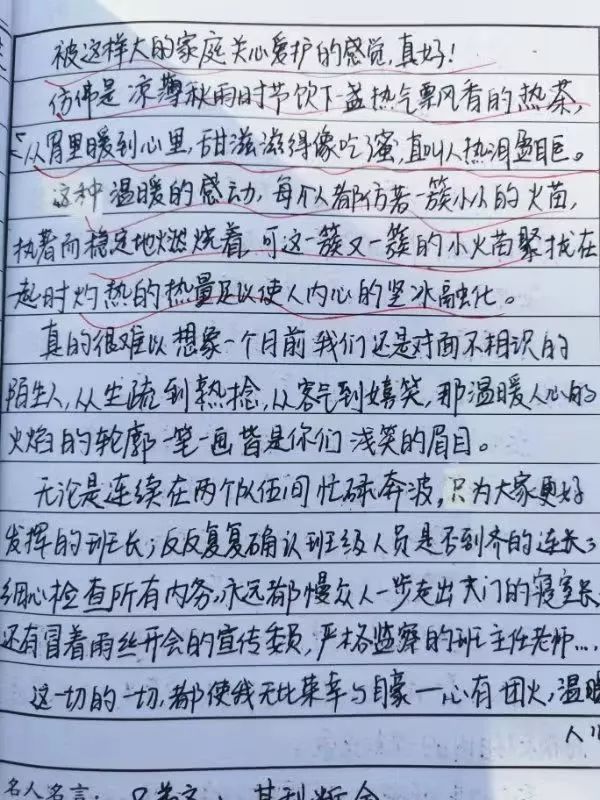 被这样大的家庭关心爱护的感觉,真好!
仿佛是凉薄秋雨时节饮下一盏热气飘香的热茶,
从胃里暖到心里,甜滋滋得像吃了蜜,直叫人热泪盈眶。
这种温暖的感动,每个人都仿若一簇小小的火苗,
执着而稳定地燃烧着,可这一簇又一簇的小火苗聚拢在
一起时灼热的热量足以使人内心的坚冰融化。
真的很难以想象一个月前我们还是对面不相识的
陌生人,从生疏到熟捻,从客气到嬉笑,那温暖人心的
火焰的轮廓一笔一画皆是你们浅笑的眉目。
无论是连续在两个队伍间忙碌奔波,只为大家更好
发挥的班长;反反复复确认班级人员是否到齐的连长;
细心检查所有内务,永远都慢众人一步走出大门的寝室长;
还有冒着雨丝开会的宣传委员,严格监察的班主任老师....
这一切的一切,都使我无比荣幸与自豪—心有团火,温暖
人心
名人名言: